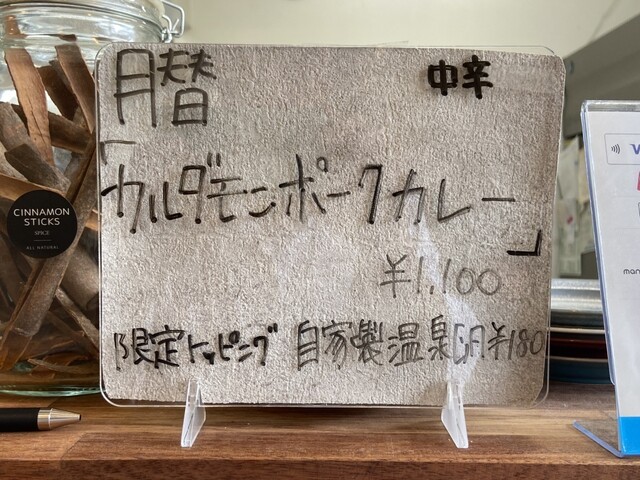 月替 中辛
「カルダモンポークカレー」
¥1,100
限定トッピング 自家製温泉卵¥180
CINNAMON
STICKS
SPICE
ALL NATURAL